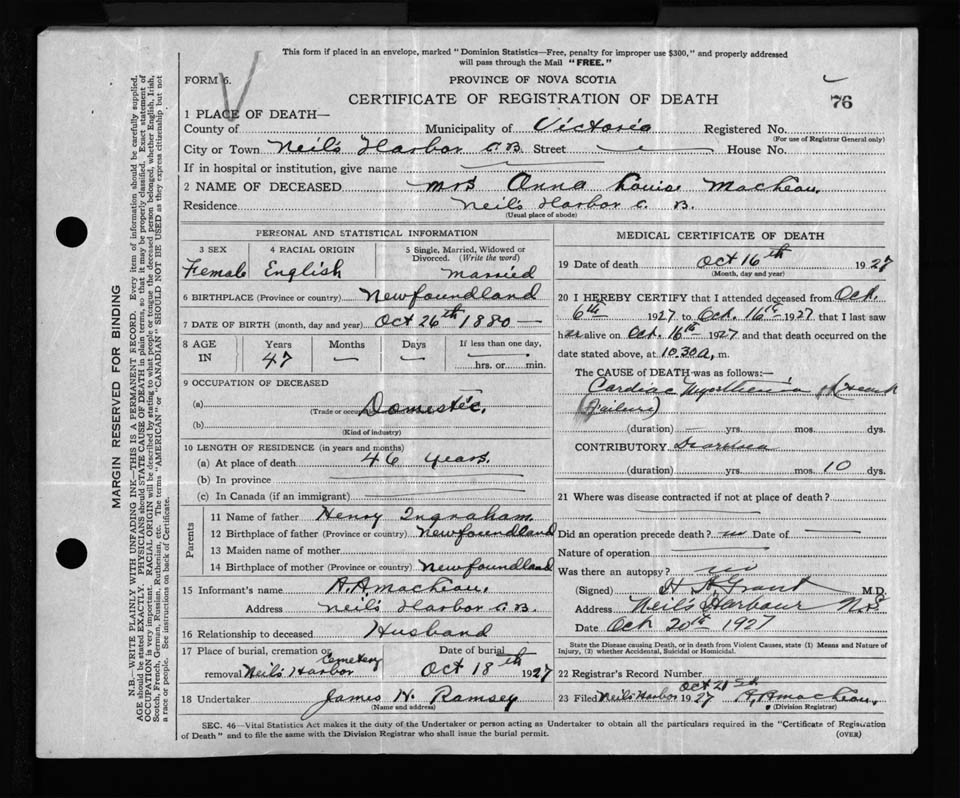 This form if placed in an envelope, marked "Dominion Statistics—Free, penalty for improper use $300," and properly addressed
will pass through the Mail "FREE."
FORM 6.
PROVINCE OF NOVA SCOTIA
CERTIFICATE OF REGISTRATION OF DEATH
76
1 PLACE OF DEATH—
County of Municipality of Victoria Registered No.
(For use of Registrar General only)
City or Town Neil's Harbor C.B. Street — House No.
If in hospital or institution, give name —
2 NAME OF DECEASED Mrs Anna Louise
Residence Neil's Harbor C. B.
(Usual place of abode)
PERSONAL AND STATISTICAL INFORMATION
3 SEX 4 RACIAL ORIGIN 5 Single, Married, Widowed or Divorced. (Write the word)
Female English married
6 BIRTHPLACE (Province or country) Newfoundland
7 DATE OF BIRTH (month, day and year) Oct 26th 1880 —
8 AGE IN Years Months Days If less than one day,
47 — — — hrs. or min.
9 OCCUPATION OF DECEASED
(a) Domestic.
(Trade or occupation)
(b)
(Kind of industry)
10 LENGTH OF RESIDENCE (in years and months)
(a) At place of death 46 years.
(b) In province —
(c) In Canada (if an immigrant) —
Parents
11 Name of father Henry Ingraham.
12 Birthplace of father (Province or country) Newfoundland
13 Maiden name of mother
14 Birthplace of mother (Province or country) Newfoundland
15 Informant's name
Address Neil's Harbor C.B.
16 Relationship to deceased Husband
17 Place of burial, cremation or removal Neil's Harbor Cemetery Date of burial Oct 18th 1927
18 Undertaker James N. Ramsey
(Name and address)
MEDICAL CERTIFICATE OF DEATH
19 Date of death Oct 16th 1927
(Month, day and year)
20 I HEREBY CERTIFY that I attended deceased from Oct.
6th 1927 to Oct. 16th 1927 that I last saw
her alive on Oct. 16th 1927 and that death occurred on the
date stated above, at 10.30 a, m.
The CAUSE of DEATH was as follows:—
Cardiac Myasthenia
(Failure)
(duration) — yrs. mos. dys.
CONTRIBUTORY Diarrhea
(duration) yrs. mos. 10 dys.
21 Where was disease contracted if not at place of death?
Did an operation precede death? no Date of —
Nature of operation —
Was there an autopsy? no
(Signed) H A Grant M.D.
Address Neil's Harbour N.S.
Date Oct 20th 1927
State the Disease causing Death, or in Death from Violent Causes, state (1) Means and Nature of
Injury, (2) whether Accidental, Suicidal or Homicidal.
22 Registrar's Record Number
23 Filed Neil's Harbor Oct 21st 1927
(Division Registrar)
SEC. 46—Vital Statistics Act makes it the duty of the Undertaker or person acting as Undertaker to obtain all the particulars required in the "Certificate of Registration
of Death" and to file the same with the Division Registrar who shall issue the burial permit.
(OVER)
MARGIN RESERVED FOR BINDING
N.B.—WRITE PLAINLY WITH UNFADING INK—THIS IS A PERMANENT RECORD. Every item of information should be carefully supplied.
AGE should be stated EXACTLY. PHYSICIANS should STATE CAUSE OF DEATH in plain terms, so that it may be properly classified. Exact statement of
OCCUPATION is very important. RACIAL ORIGIN will be described by stating to what people or tongue the deceased person belonged, whether English, Irish,
Scotch, French, German, Russian, Ruthenian, etc. The terms "AMERICAN" or "CANADIAN" SHOULD NOT BE USED as they express citizenship but not
a race or people. See instructions on back of Certificate.